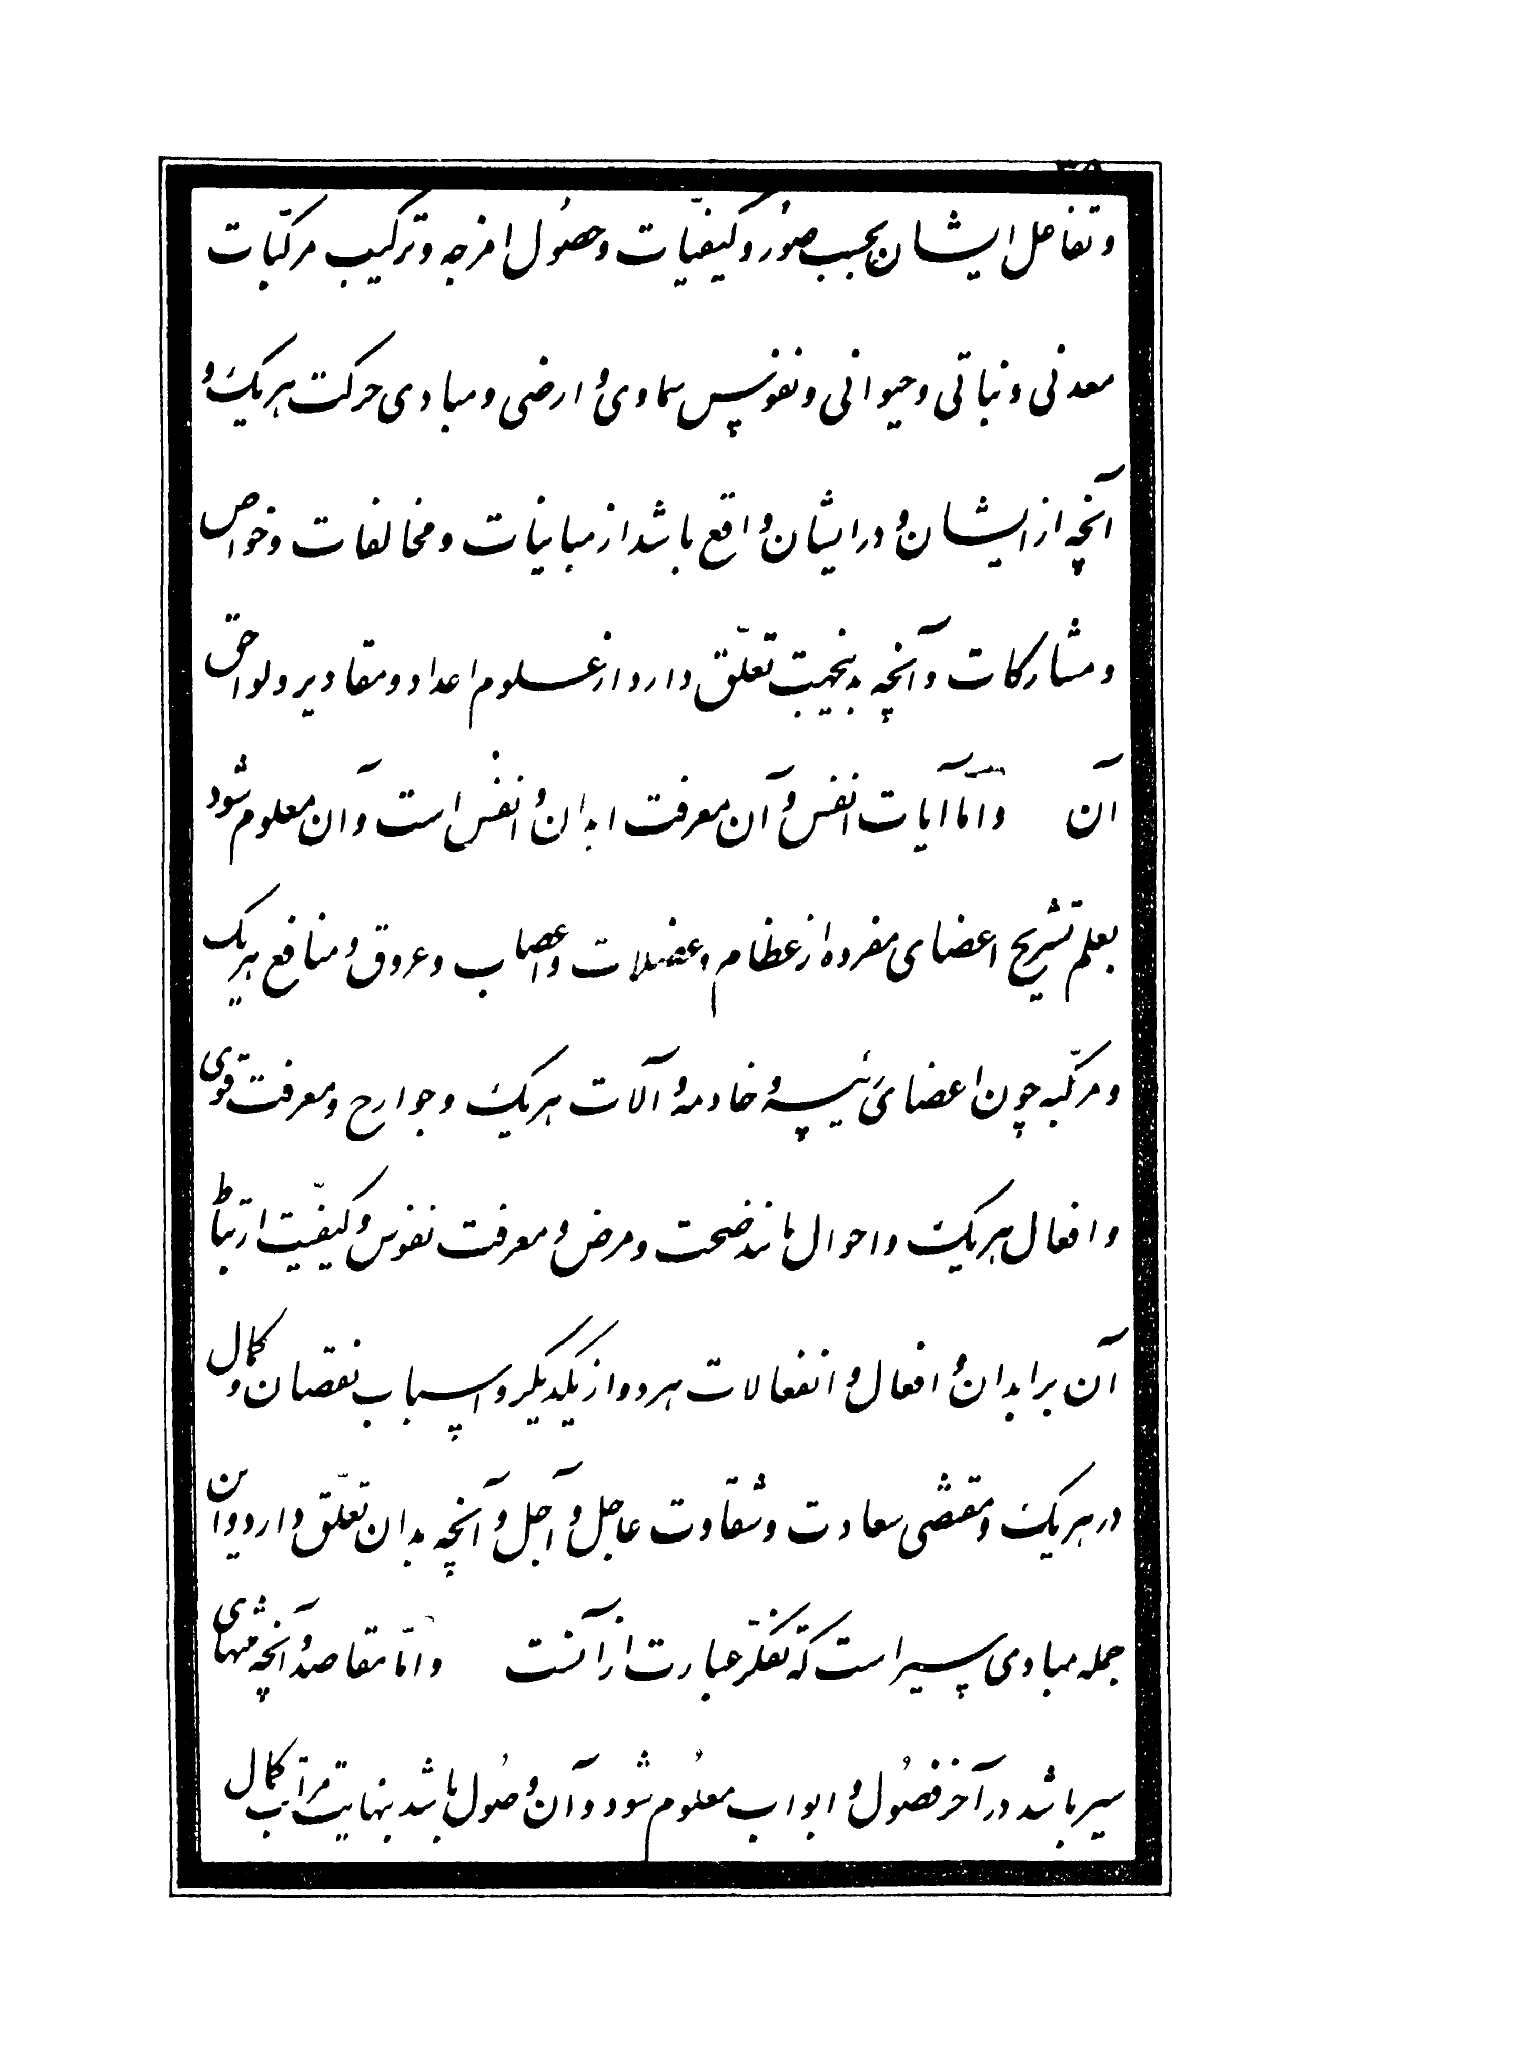 و تفاعل ایشان بحسب صوُر و کیفیّات و حصُول امزجه و ترکیب مرکّبات
معدنی و نباتی و حیوانی و نفوس سماوی و ارضی و مبادی حرکت هریک و
آنچه از ایشان و در ایشان واقع باشد از مباینات و مخالفات و خواص
و مشارکات و آنچه بدینجهت تعلّق دارد از علوم اعداد و مقادیر و لواحق
آن و امّا آیات انفس و آن معرفت ابدان و انفس است و آن معلوم شود
بعلم تشریح اعضای مفرده از عظام و عضلات و اعصاب و عروق و منافع هریک
و مرکّبه چون اعضای رئیسه و خادمه و آلات هریک و جوارح و معرفت قوی
و افعال هریک و احوال مانند صحت و مرض و معرفت نفوس و کیفیّت ارتباط
آن بر ابدان و افعال و انفعالات هردو از یکدیگر و اسباب نقصان و کمال
در هریک و مقتضی سعادت و شقاوت عاجل و آجل و آنچه بدان تعلّق دارد و این
جمله مبادی سیر است که تفکّر عبارت از آنست و امّا مقاصد و آنچه منتهای
سیر باشد در آخر فصُول و ابواب معلُوم شود و آن وصُول باشد بنهایت مراتب کمال